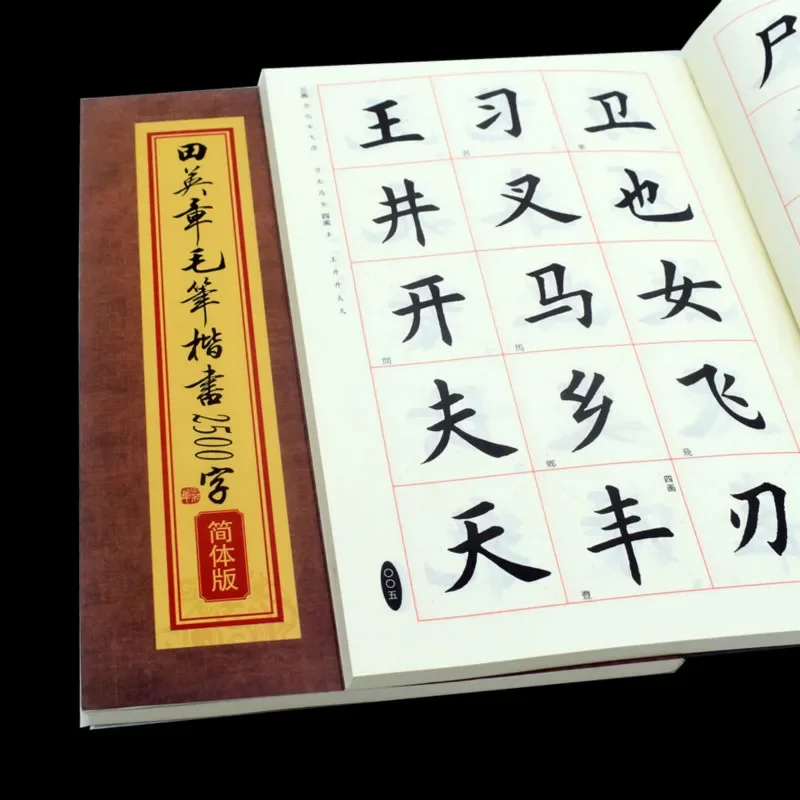 田英章毛筆楷書2500字
简体版
王 习 卫
井 叉 也
开 马 女
夫 乡 飞
天 丰 刃
習
衛
開
馬
鄉
飛
四画
〇〇五
尸